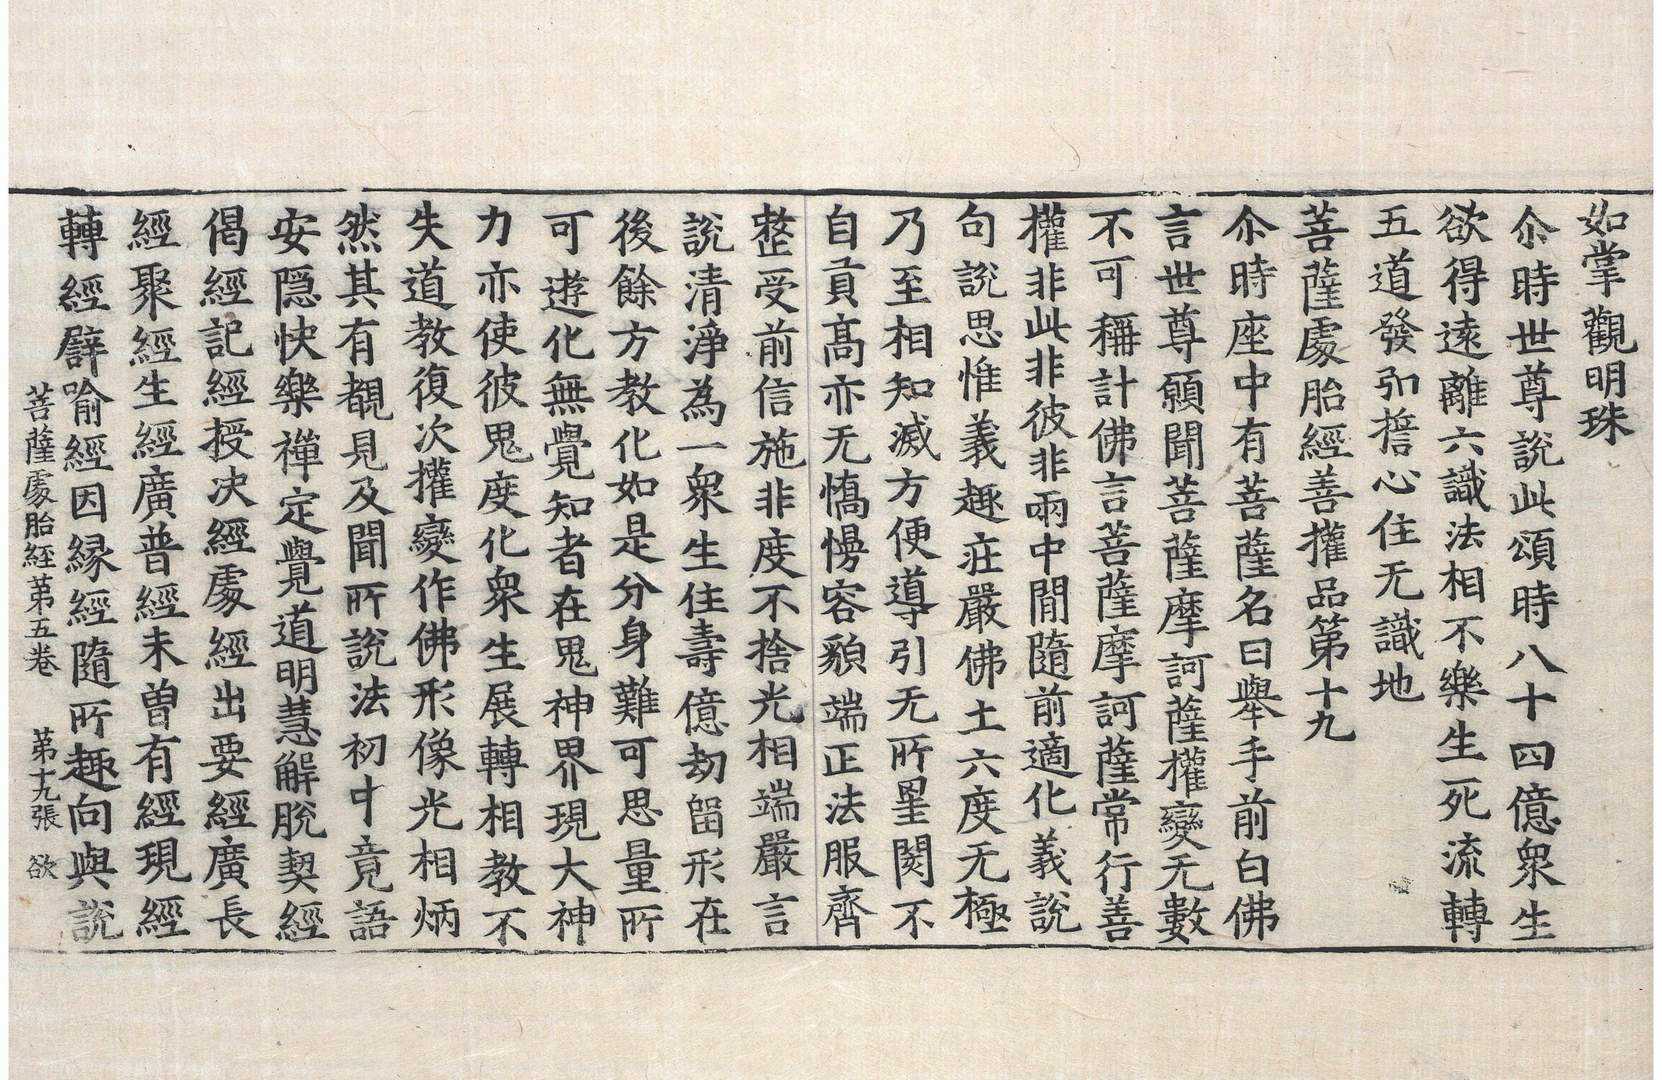 如掌觀明珠
尒時世尊說此頌時八十四億衆生
欲得遠離六識法相不樂生死流轉
五道發弘誓心住无識地
菩薩處胎經善權品第十九
尒時座中有菩薩名曰舉手前白佛
言世尊願聞菩薩摩訶薩權變无數
不可稱計佛言菩薩摩訶薩常行善
權非此非彼非兩中間隨前適化義說
句說思惟義趣莊嚴佛土六度无極
乃至相知滅方便導引无所罣閡不
自貢高亦无憍慢容貌端正法服齊
整受前信施非度不捨光相端嚴言
說清淨為一衆生住壽億劫留形在
後餘方教化如是分身難可思量所
可遊化無覺知者在鬼神界現大神
力亦使彼鬼度化衆生展轉相教不
失道教復次權變作佛形像光相炳
然其有覩見及聞所說法初中竟語
安隱快樂禪定覺道明慧解脫契經
偈經記經授决經處經出要經廣長
經聚經生經廣普經未曾有經現經
轉經譬喻經因緣經隨所趣向與說
菩薩處胎經第五卷 第十九張 欲